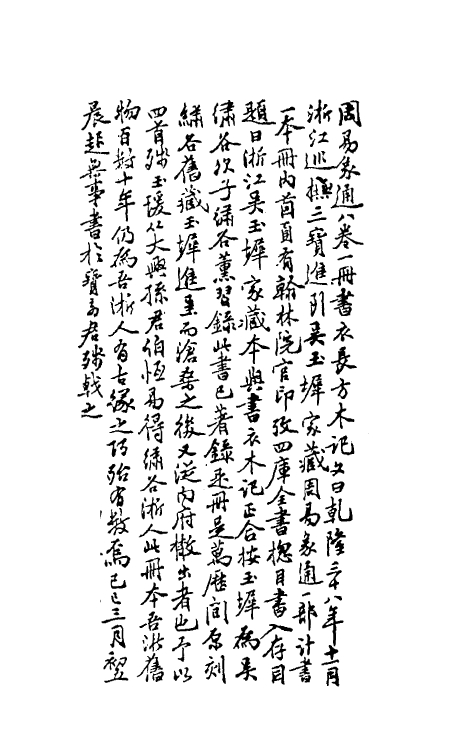 周易象通八卷一冊書衣長方木記文曰乾隆三十八年十一月
浙江巡撫三寶進到吳玉墀家藏周易象通一部計書
一本冊內首頁有翰林院官印攷四庫全書總目書入存目
題曰浙江吳玉墀家藏本與書衣木記正合按玉墀為吳
繡谷次子繡谷薰習錄此書已著錄此冊是萬歷間原刻
繡谷舊藏玉墀進呈而滄桑之後又從內府散出者也予以
四首殘玉瑗從大興孫君伯恆易得繡谷浙人此冊本吾浙舊
物百數十年仍為吾浙人有古緣之巧殆有數焉己巳三月初
晨起無事書於寶君殘戟之